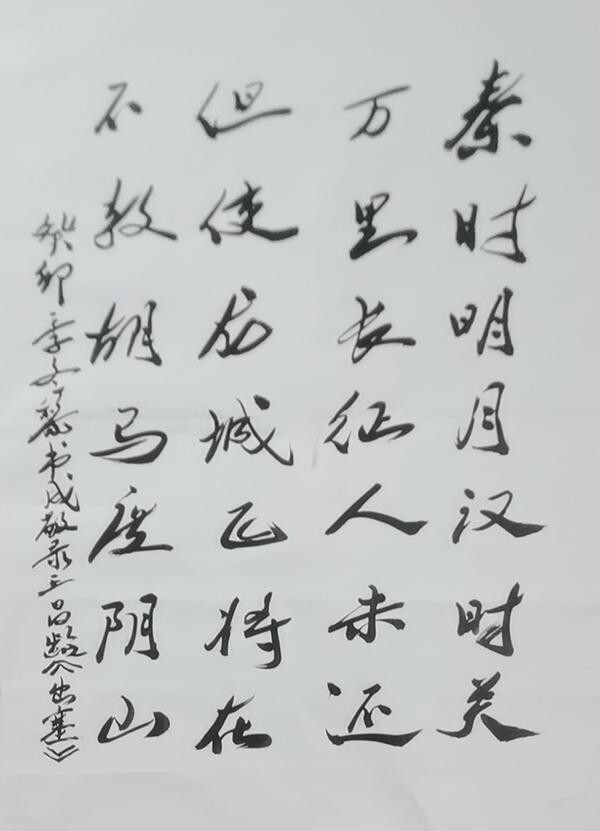 秦时明月汉时关
万里长征人未还
但使龙城飞将在
不教胡马度阴山
癸卯季冬书成敬录王昌龄《出塞》